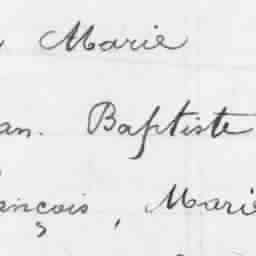 Marie
an. Baptiste
ançois, Marie